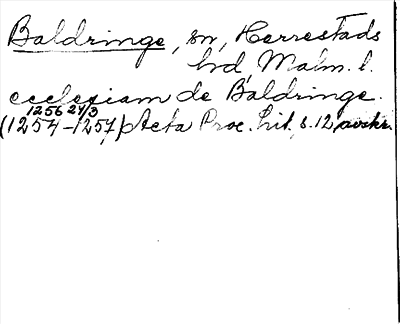 Baldringe, sn, Herrestads
hd, Malm. l.
ecclesiam de Baldringe.
1256 24/3
(1254-1257) Acta Proc. Lit. s. 12 avskr.